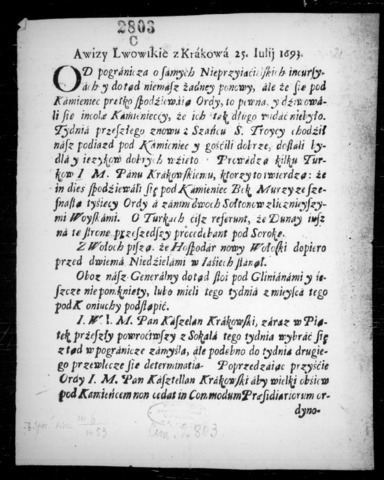 2803
C
Awizy Lwowskie z Krákowá 25. Iulij 1693.
OD pogránicza o sámych Nieprzyiaćielskich incursy-
ách y dotąd niemasz żadney ponowy, ále że się pod
Kámieniec prętko spodźiewáią Ordy, to pewna, y dźiwowá-
li się incolæ Kámienieccy, że ich ták długo widáć niebyło.
Tydniá przeszłego znowu z Száńcu S. Troycy chodźił
nász podiazd pod Kámieniec y gośćili dobrze, dostáli by-
dłá y ięzykow dobrych wźięto. Prowádzą kilku Tur-
kow I M. Pánu Krákowskiemu, ktorzy to twierdzą: że
in dies spodźiewáli się pod Kámieniec Bek Murzy ze sze-
snastą tyśięcy Ordy á zánim dwoch Sołtonow z licznieyszy-
mi Woyskámi. O Turkách ćisz referunt, że Dunay iusz
ná tę stronę przeszedszy procedebant pod Sorokę.
Z Wołoch piszą, że Hospodár nowy Wołoski dopiero
przed dwiemá Niedźielámi w Iásiech stánął.
Oboz nász Generálny dotąd stoi pod Gliniánámi y ie-
szcze nieporuszony, lubo mieli tego tydniá z mieyscá tego
pod Koniuchy podstąpić.
I. W. I. M. Pan Kásztelan Krákowski, záraz w Pią-
tek przeszły powroćiwszy z Sokalá tego tydniá wybráć się
ztąd w pogránicze zámyśla, ále podobno do tydniá drugie-
go przewlecze się determinatia. Poprzedzáiąc przyśćie
Ordy I. M. Pan Kásztellan Krákowski áby wielki obsiew
pod Kámieńcem non cedat in Commodum Præsidiariorum or-
dyno-
2803